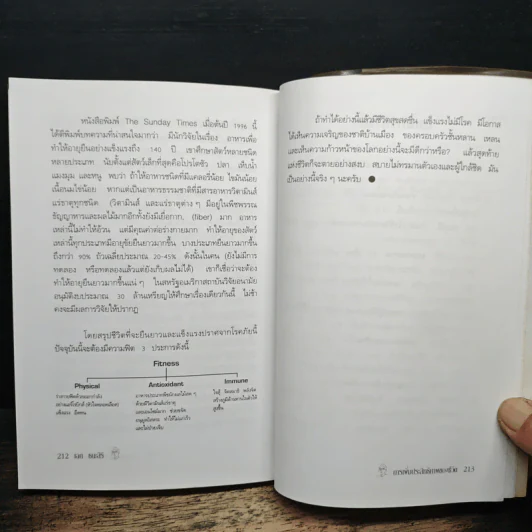 หนังสือพิมพ์ The Sunday Times เมื่อต้นปี 1996 นี้
ได้ตีพิมพ์บทความที่น่าสนใจมากว่า มีนักวิจัยในเรื่อง อาหารเพื่อ
ทำให้อายุยืนอย่างแข็งแรงถึง 140 ปี เขาศึกษาสัตว์หลายชนิด
หลายประเภท นับตั้งแต่สัตว์เล็กที่สุดคือโปรโตซัว ปลา เห็บน้ำ
แมงมุม และหนู พบว่า ถ้าให้อาหารชนิดที่มีแคลอรี่น้อย ไขมันน้อย
เนื้อนมไข่น้อย หากแต่เป็นอาหารธรรมชาติที่มีสารอาหารวิตามินส์
แร่ธาตุทุกชนิด (วิตามินส์ และแร่ธาตุต่าง ๆ มีอยู่ในพืชพรรณ
ธัญญาหารและผลไม้มากอีกทั้งยังมีเยื่อกาก, (fiber) มาก อาหาร
เหล่านี้ไม่ทำให้อ้วน แต่มีคุณค่าต่อร่างกายมาก ทำให้อายุของสัตว์
เหล่านี้ทุกประเภทมีอายุขัยยืนยาวมากขึ้น บางประเภทยืนยาวมากขึ้น
ถึงกว่า 90% ถัวเฉลี่ยประมาณ 20-45% ดังนั้นในคน (ยังไม่มีการ
ทดลอง หรือทดลองแล้วแต่ยังเก็บผลไม่ได้) เขาก็เชื่อว่าจะต้อง
ทำให้อายุยืนยาวมากขึ้นแน่ ๆ ในสหรัฐอเมริกาสถาบันวิจัยอนามัย
อนุมัติงบประมาณ 30 ล้านเหรียญให้ศึกษาเรื่องเดียวกันนี้ ไม่ช้า
คงจะมีผลการวิจัยให้ปรากฏ
โดยสรุปชีวิตที่จะยืนยาวและแข็งแรงปราศจากโรคภัยนี้
ปัจจุบันนี้จะต้องมีความฟิต 3 ประการดังนี้
Fitness
Physical Antioxidant Immune
212
ถ้าทำได้อย่างนี้แล้วมีชีวิตสุขสดชื่น แข็งแรงไม่มีโรค มีโอกาส
ได้เห็นความเจริญของชาติบ้านเมือง ของครอบครัวชั้นหลาน เหลน
และเห็นความก้าวหน้าของโลกอย่างนี้จะมิดีกว่าหรือ? แล้วสุดท้าย
แห่งชีวิตก็จะตายอย่างสงบ สบายไม่ทรมานตัวเองและผู้ใกล้ชิด มัน
เป็นอย่างนี้จริง ๆ นะครับ
213